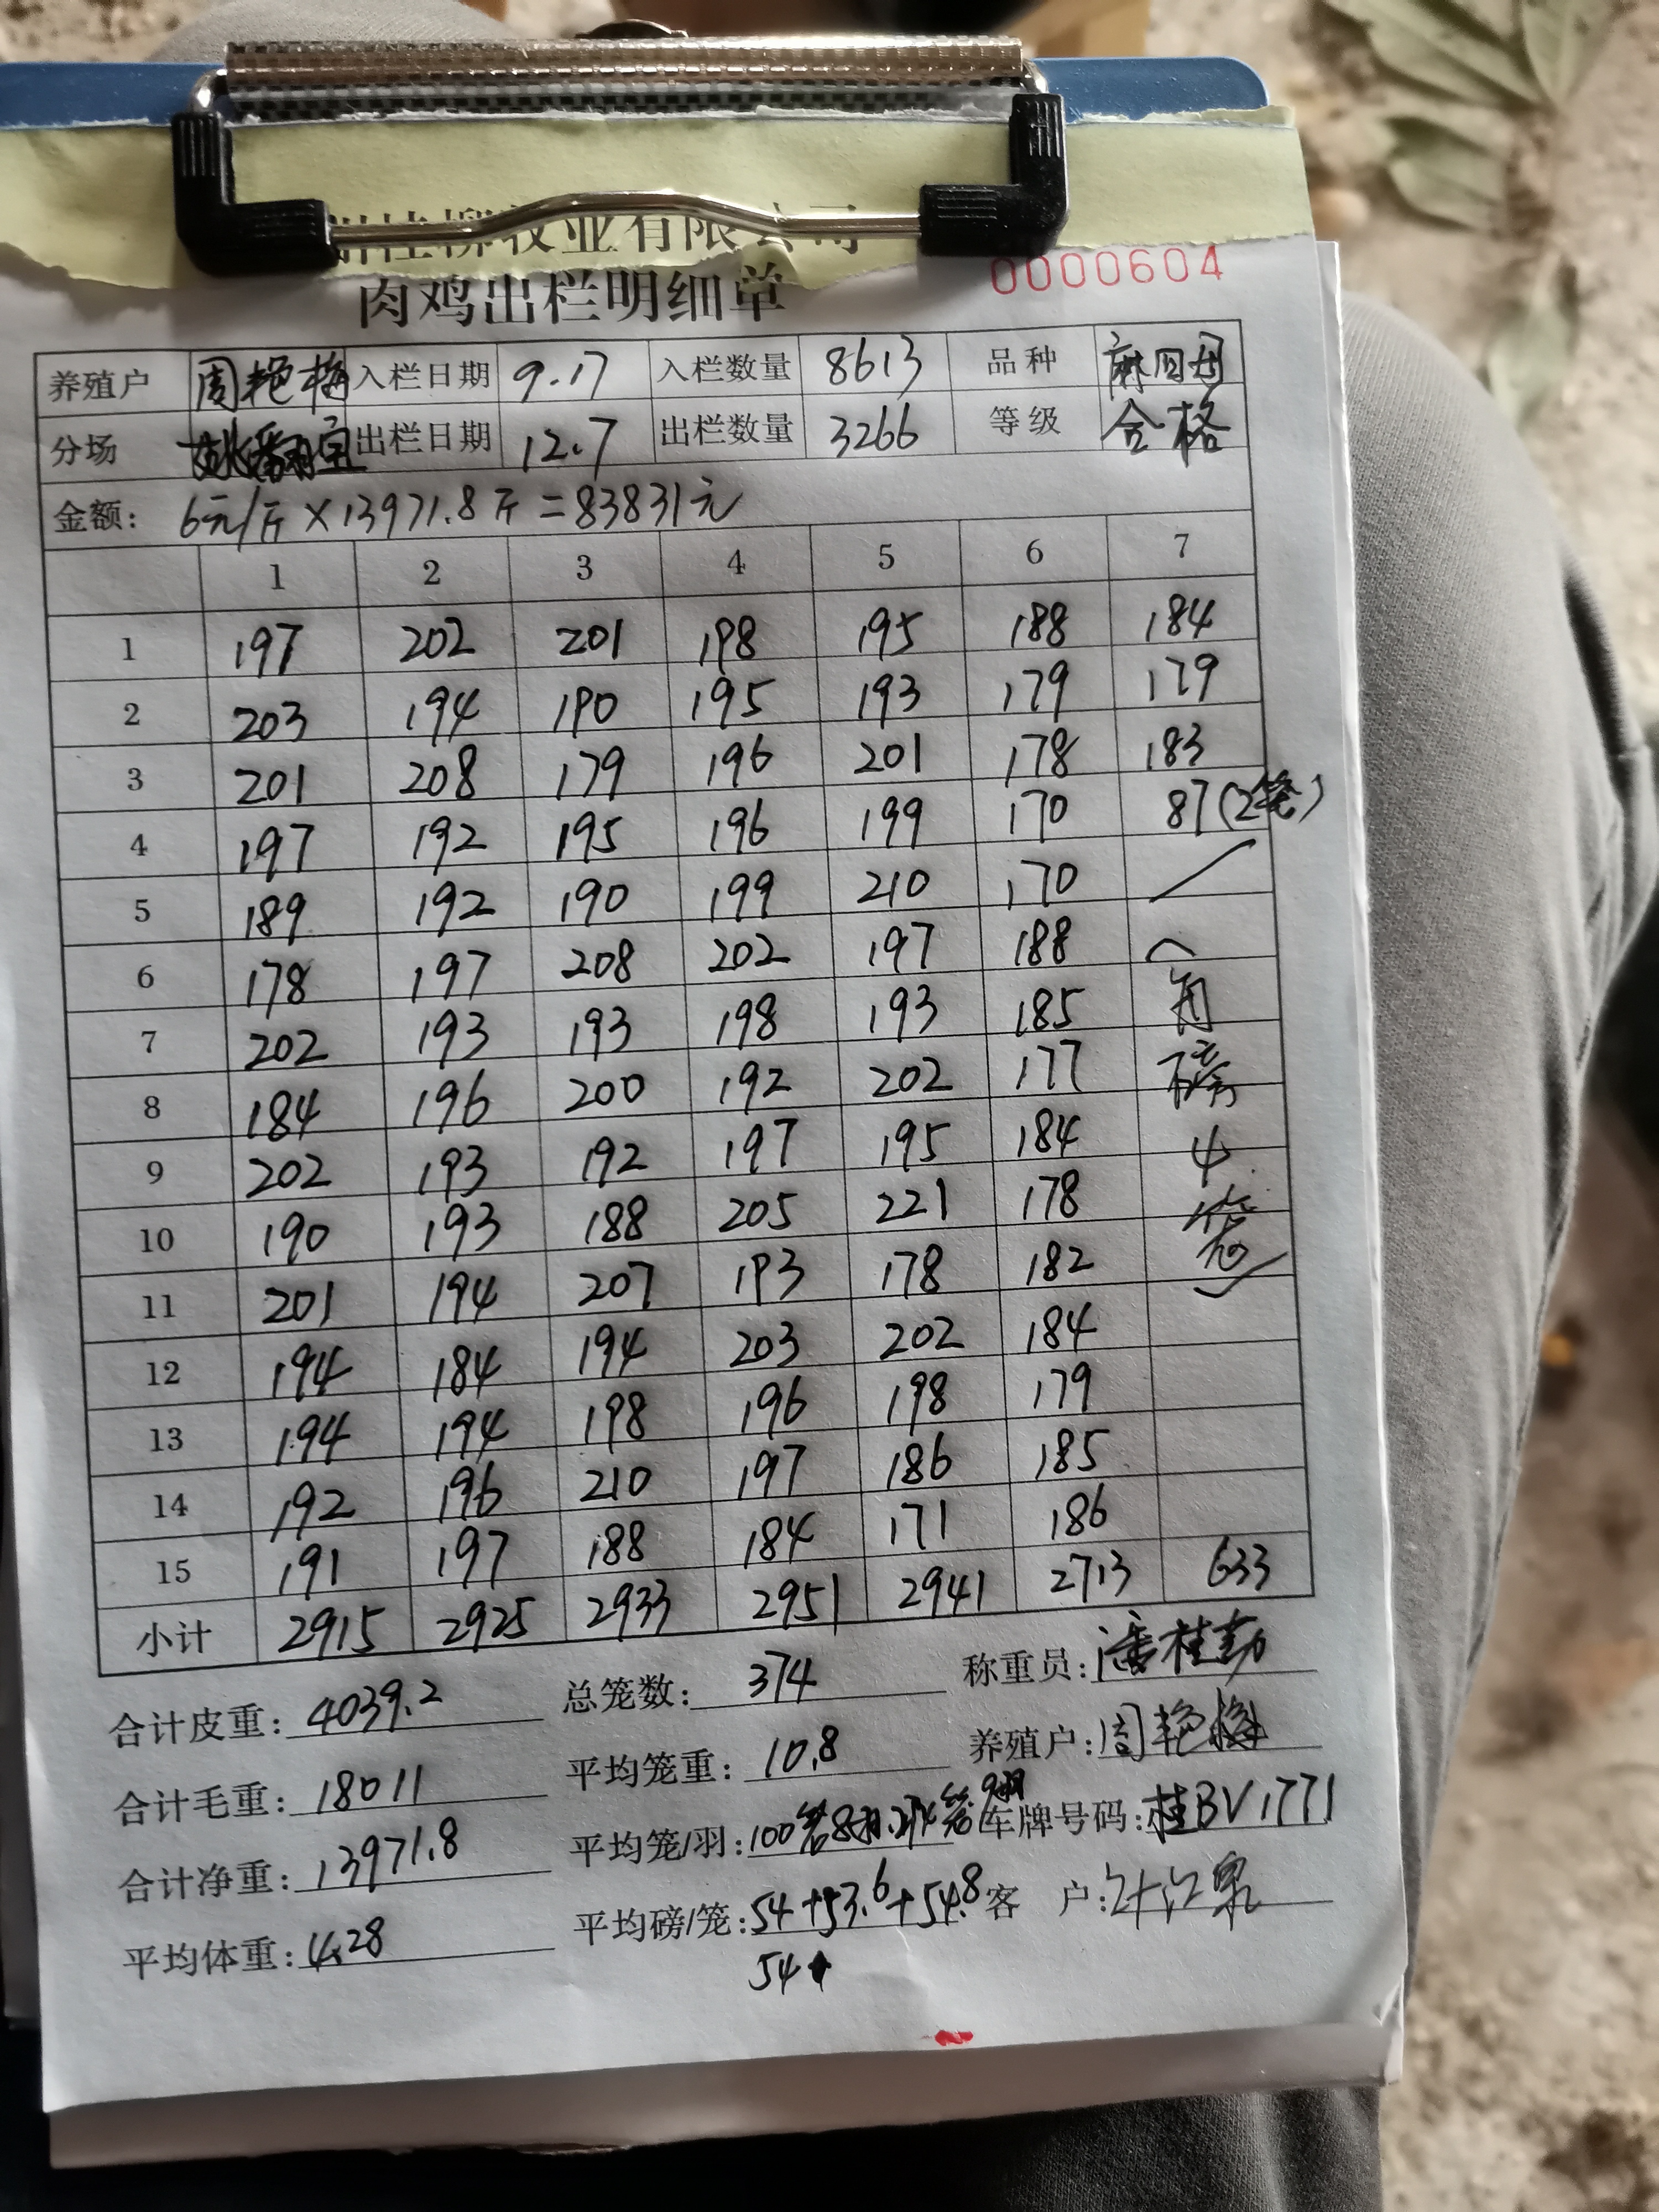 桂柳牧业有限公司
肉鸡出栏明细单
0000604
养殖户 周艳梅 入栏日期 9.17 入栏数量 8613 品种
分场 出栏日期 12.7 出栏数量 3266 等级 合格
金额: 6元/斤×13971.8斤=83831元
1 2 3 4 5 6 7
1 197 202 201 198 195 188 184
2 203 194 190 195 193 179 179
3 201 208 179 196 201 178 183
4 197 192 195 196 199 170 87(2笼)
5 189 192 190 199 210 170
6 178 197 208 202 197 188 (
7 202 193 193 198 193 185 每
8 184 196 200 192 202 177 磅
9 202 193 192 197 195 184 4
10 190 193 188 205 221 178 笼
11 201 194 207 193 178 182 )
12 194 184 194 203 202 184
13 194 194 198 196 198 179
14 192 196 210 197 186 185
15 191 197 188 184 171 186
小计 2915 2925 2933 2951 2941 2713 633
合计皮重: 4039.2 总笼数: 374 称重员: 潘桂勤
合计毛重: 18011 平均笼重: 10.8 养殖户: 周艳梅
合计净重: 13971.8 平均笼/羽: 100笼8羽.274笼9羽 车牌号码: 桂BV1771
平均体重: 4.28 平均磅/笼: 54+53.6+54.8 客 户:
54